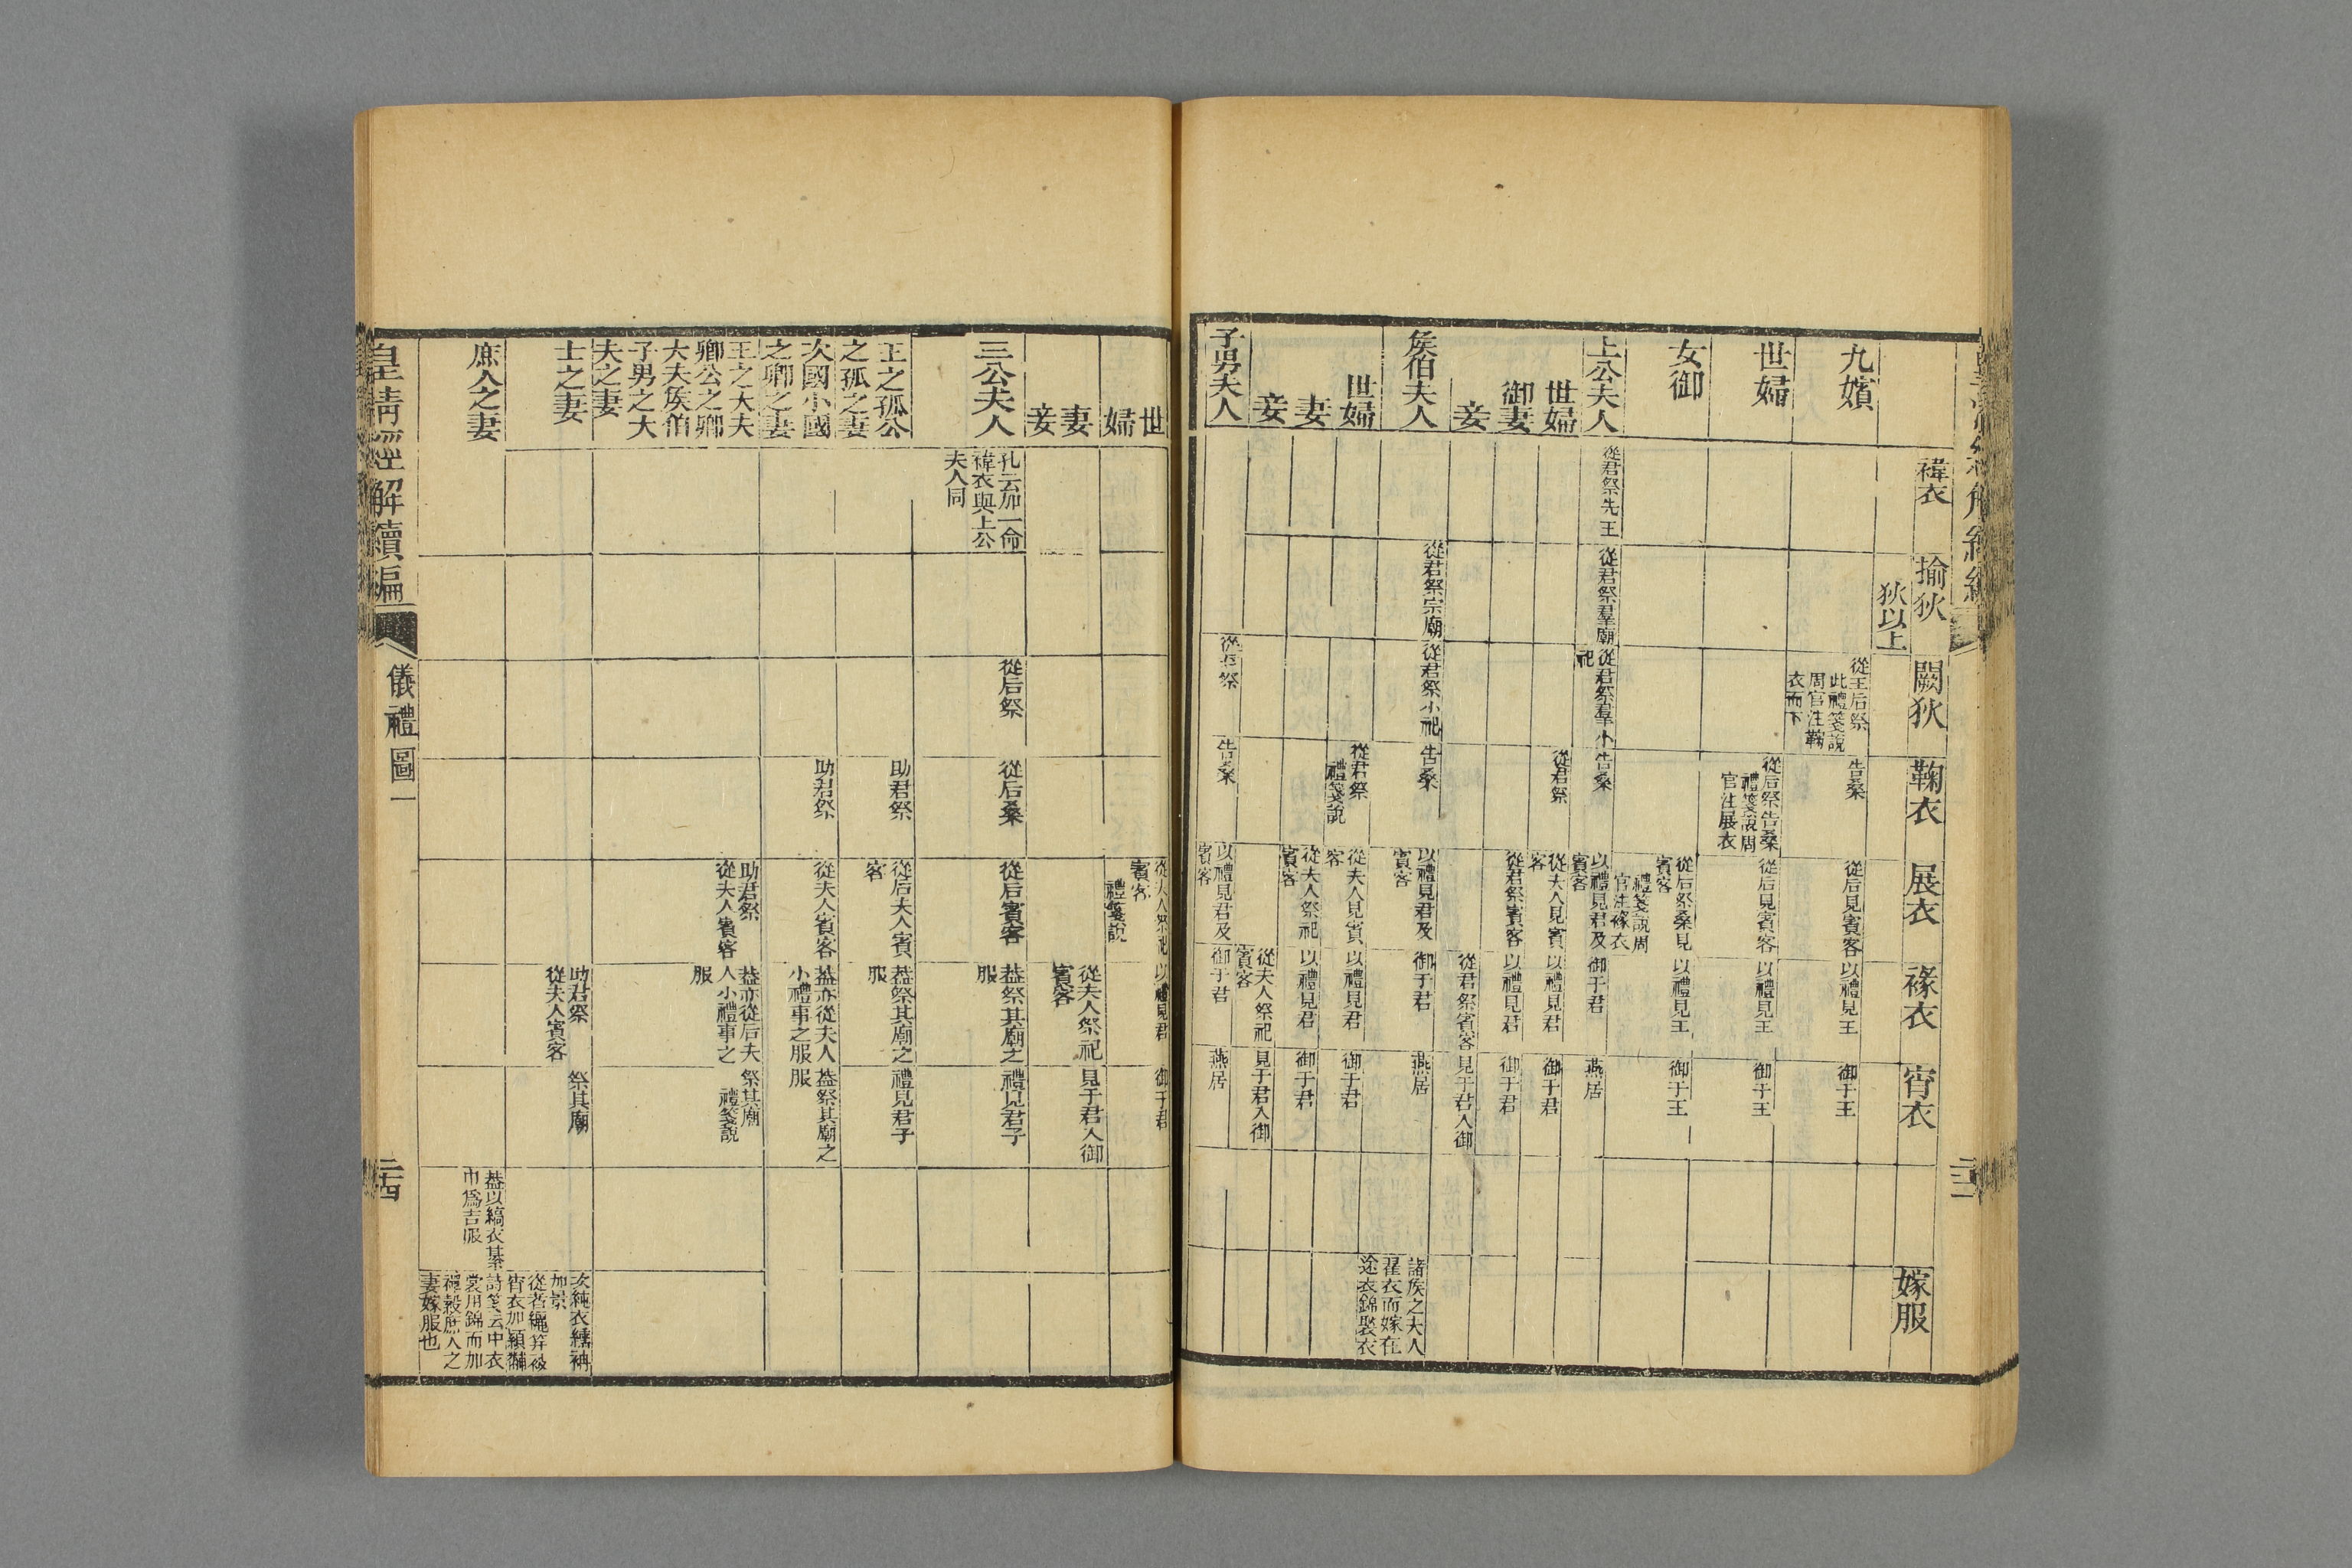 褘衣
揄狄
闕狄
鞠衣
展衣
褖衣
宵衣
嫁服
狄以上
九嬪
從王后祭
此禮箋說
周官注鞠
衣而下
告桑
從后見賓客
以禮見王
御于王
世婦
從后祭告桑
禮箋說周
官注展衣
從后見賓客
以禮見王
御于王
女御
從后祭桑見
賓客
禮箋說周
官注褖衣
以禮見王
御于王
上公夫人
從君祭先王
從君祭羣廟
從君祭羣小
祀
告桑
以禮見君及
賓客
御于君
燕居
世婦
從君祭
從夫人見賓
客
以禮見君
御于君
御妻
從君祭賓客
以禮見君
御于君
妾
從君祭賓客
見于君入御
矦伯夫人
從君祭宗廟
從君祭小祀
告桑
以禮見君及
賓客
御于君
燕居
諸矦之夫人
翟衣而嫁在
途衣錦褧衣
世婦
從君祭
禮箋說
從夫人見賓
客
以禮見君
御于君
妻
從夫人祭祀
賓客
以禮見君
御于君
妾
從夫人祭祀
賓客
見于君入御
子男夫人
從后祭
告桑
以禮見君及
賓客
御于君
燕居
世
婦
從夫人祭祀
賓客
禮箋說
以禮見君
御于君
妻
妾
從夫人祭祀
賓客
見于君入御
三公夫人
孔云加一命
褘衣與上公
夫人同
從后祭
從后桑
從后賓客
葢祭其廟之
服
禮見君子
王之孤公
之孤之妻
助君祭
從后夫人賓
客
葢祭其廟之
服
禮見君子
次國小國
之卿之妻
助君祭
從夫人賓客
葢亦從夫人
小禮事之服
葢祭其廟之
服
王之大夫
卿公之卿
大夫矦伯
子男之大
夫之妻
助君祭
從夫人賓客
葢亦從后夫
人小禮事之
服
祭其廟
禮箋說
士之妻
助君祭
從夫人賓客
祭其廟
次純衣纁袡
加景
從者纚笄被
宵衣加顈黼
庶人之妻
葢以縞衣綦
巾爲吉服
詩箋云中衣
裳用錦而加
襌縠庶人之
妻嫁服也
皇清經解續編
儀禮圖一
二十四